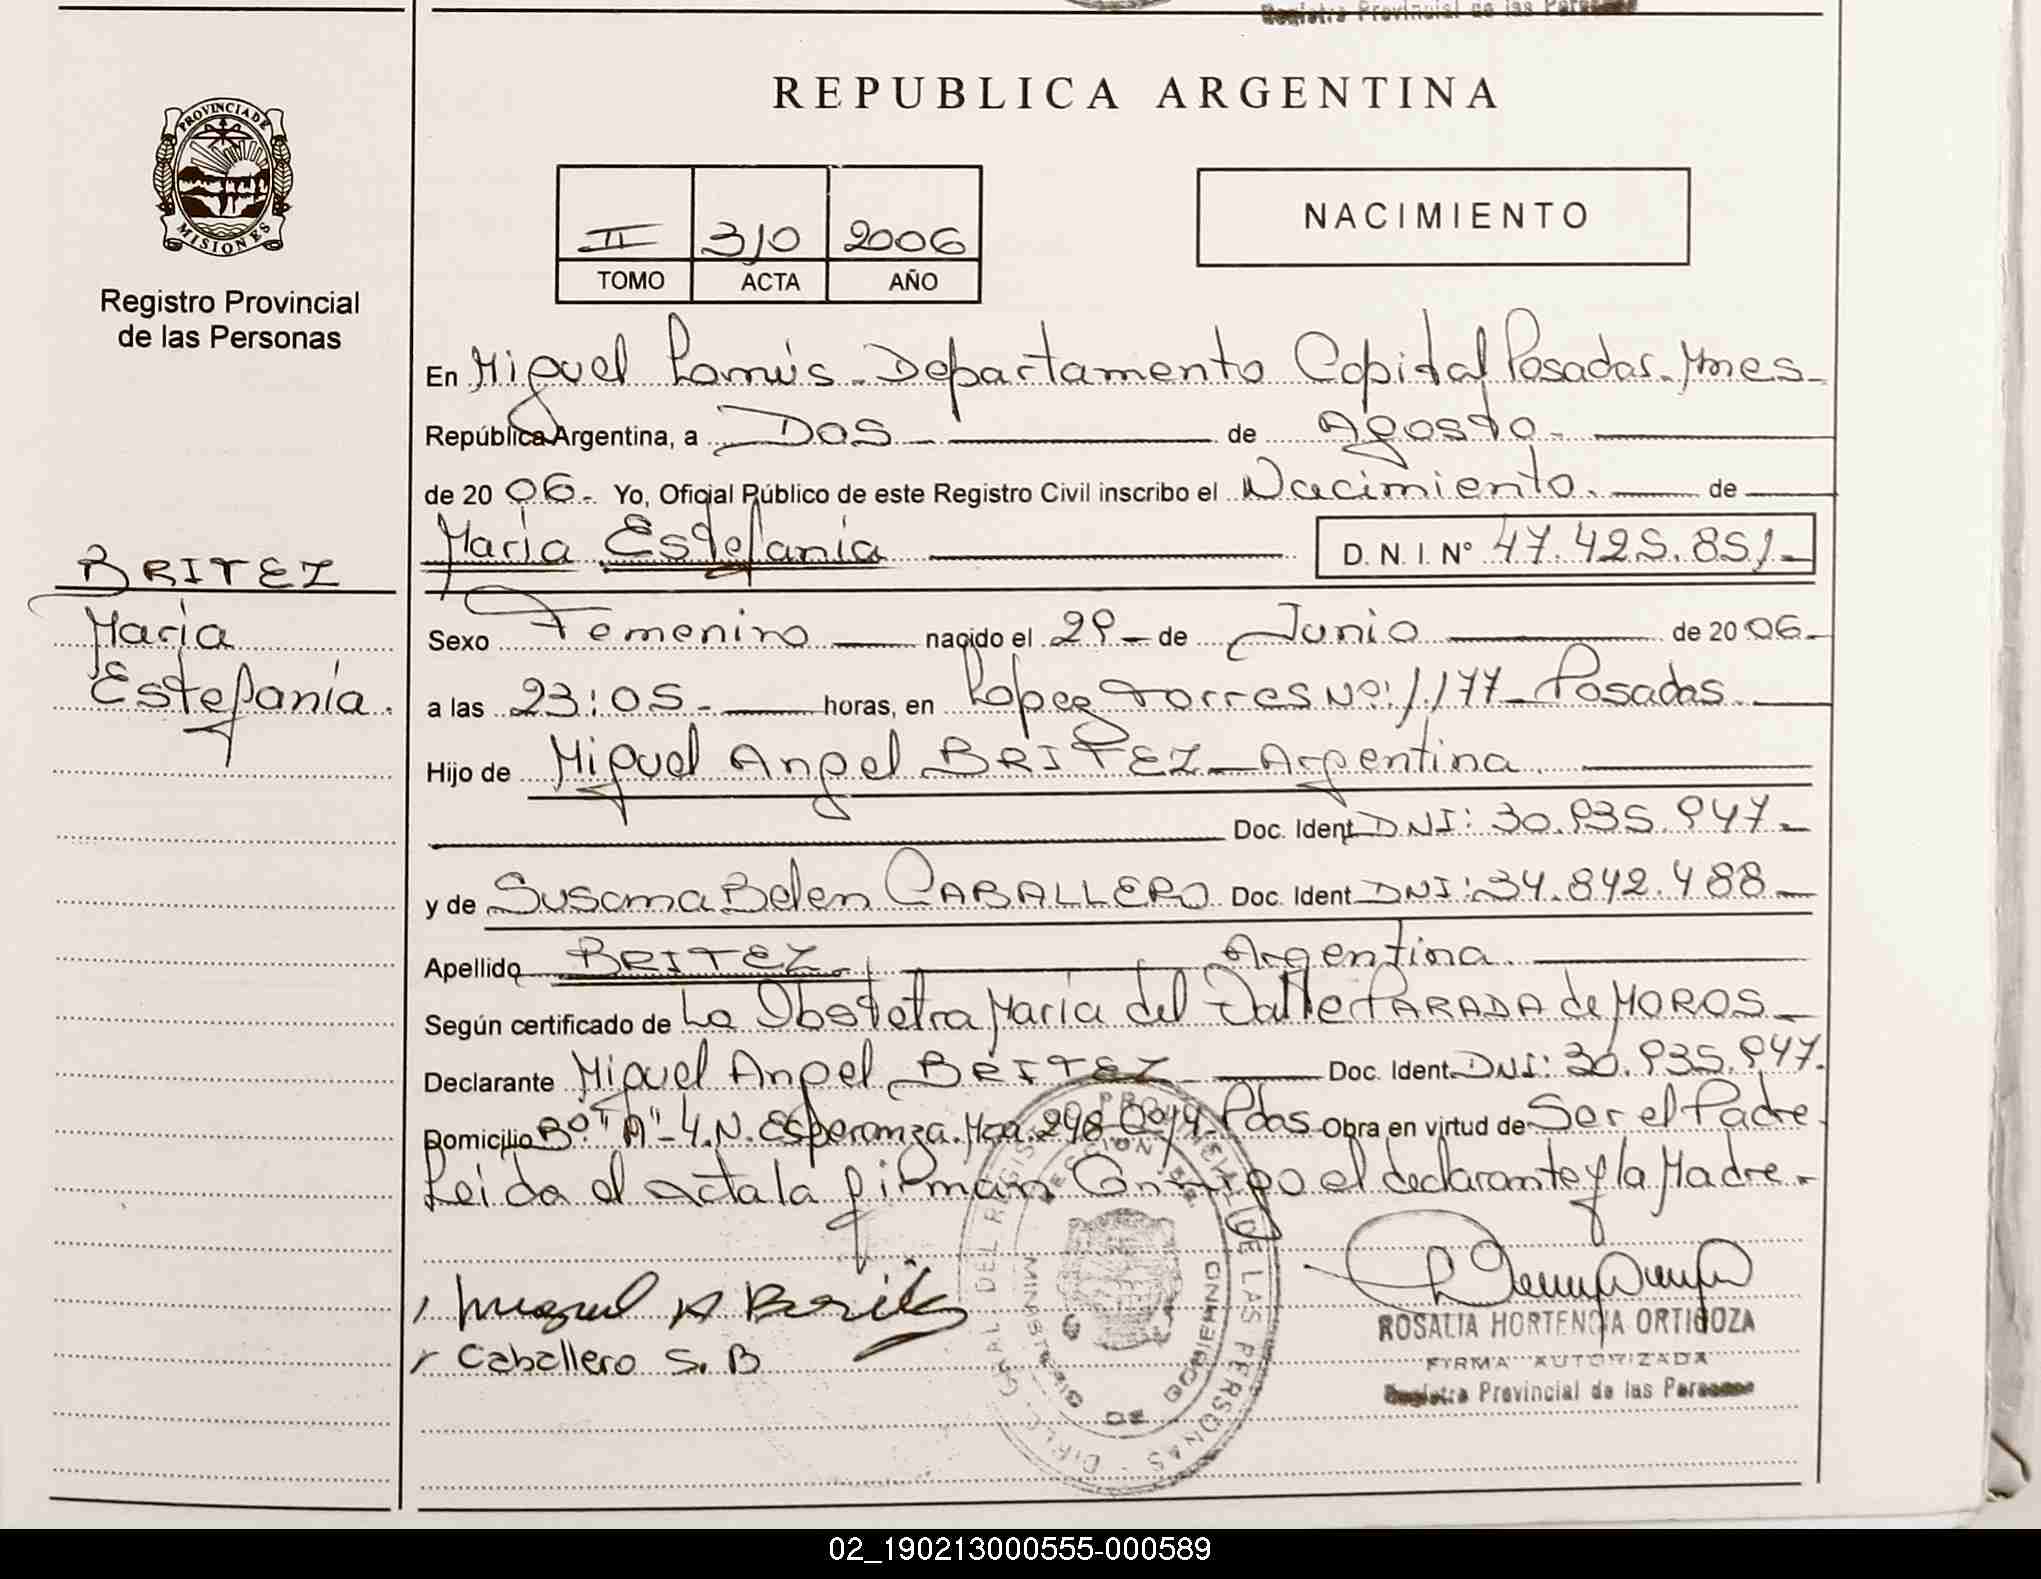 Registro Provincial de las Personas
REPUBLICA ARGENTINA
PROVINCIA DE
MISIONES
Registro Provincial
de las Personas
II 310 2006
TOMO ACTA AÑO
NACIMIENTO
En Miguel Lanús - Departamento Capital Posadas - Mnes -
República Argentina, a Dos - de Agosto -
de 2006 - Yo, Oficial Público de este Registro Civil inscribo el Nacimiento. de
María Estefanía D. N. I. Nº 47.425.851 -
BRITEZ
María
Estefanía.
Sexo Femenino nacido el 29 - de Junio de 2006 -
a las 23:05 - horas, en Lopez Torres Nº: 1.177 - Posadas
Hijo de Miguel Angel BRITEZ - Argentina
Doc. Ident. DNI: 30.935.947 -
y de Susana Belen CABALLERO Doc. Ident. DNI: 34.842.488 -
Apellido BRITEZ. Argentina
Según certificado de La Obstetra María del Valle PARADA de MOROS -
Declarante Miguel Angel BRITEZ Doc. Ident. DNI: 30.935.947.
Domicilio Bº "A" - 4. N. Esperanza. Mza. 298 Pdas Obra en virtud de Ser el Padre.
Leida el acta la firman Conmigo el declarante y la Madre -
Miguel A Britez
ROSALIA HORTENCIA ORTIGOZA
Caballero S. B
FIRMA AUTORIZADA
Registro Provincial de las Personas
MINISTERIO DE GOBIERNO
02_190213000555-000589